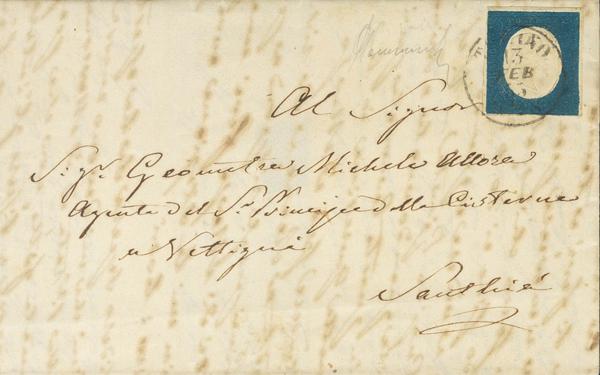 13
FEB
Al Signor
Sigr. Geometra Michele Allora
Agente del Sr. Principe della Cisterna
a Vettignè
Santhià